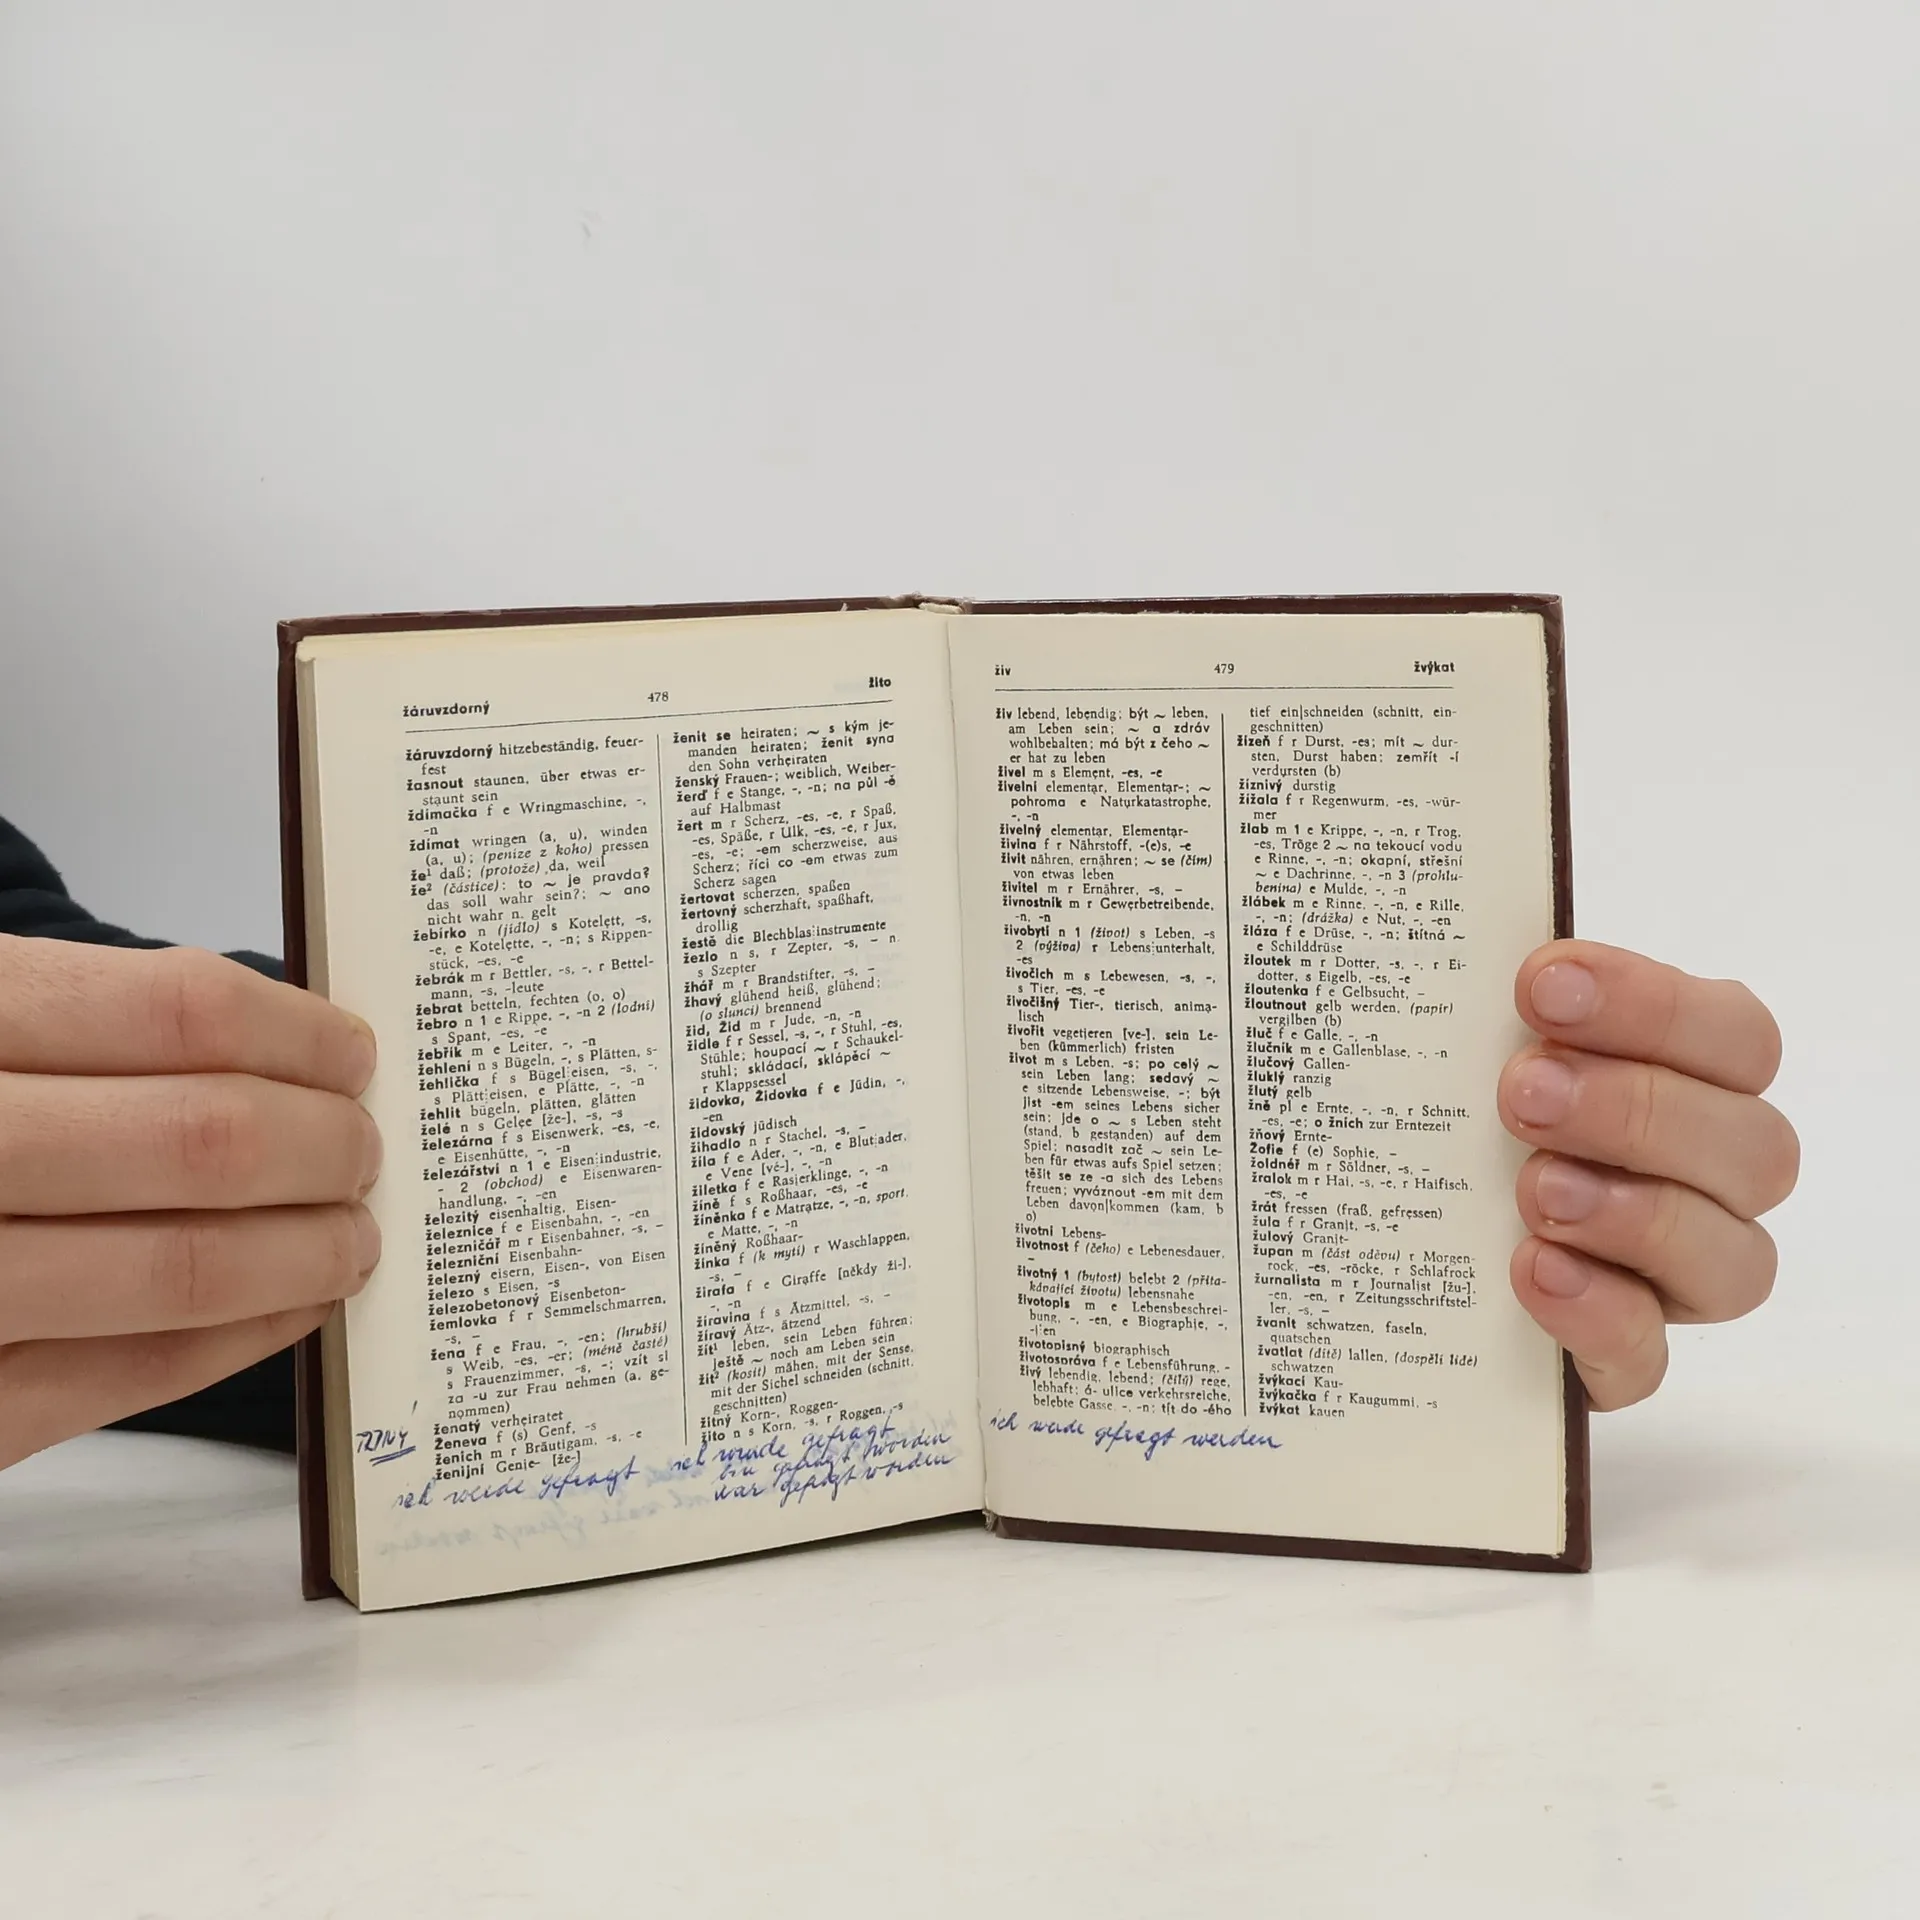 žáruvzdorný 478 žito
žáruvzdorný hitzebeständig, feuer-
fest
žasnout staunen, über etwas er-
staunt sein
ždímačka f e Wringmaschine, -,
-n
ždímat wringen (a, u), winden
(a, u); (peníze z koho) pressen
že¹ daß; (protože) da, weil
že² (částice): to ~ je pravda?
das soll wahr sein?; ~ ano
nicht wahr n. gelt
žebírko n (jídlo) s Kotelett, -s,
-e, e Kotelette, -, -n; s Rippen-
stück, -es, -e
žebrák m r Bettler, -s, -, r Bettel-
mann, -s, -leute
žebrat betteln, fechten (o, o)
žebro n 1 e Rippe, -, -n 2 (lodní)
s Spant, -es, -e
žebřík m e Leiter, -, -n
žehlení n s Bügeln, -, s Plätten, s-
žehlička f s Bügel¦eisen, -s, -,
s Plätt¦eisen, e Plätte, -, -n
žehlit bügeln, plätten, glätten
želé n s Gelee [že-], -s, -s
železárna f s Eisenwerk, -es, -e,
e Eisenhütte, -, -n
železářství n 1 e Eisen¦industrie,
- 2 (obchod) e Eisenwaren-
handlung, -, -en
železitý eisenhaltig, Eisen-
železnice f e Eisenbahn, -, -en
železničář m r Eisenbahner, -s, –
železniční Eisenbahn-
železný eisern, Eisen-, von Eisen
železo s Eisen, -s
železobetonový Eisenbeton-
žemlovka f r Semmelschmarren,
-s, –
žena f e Frau, -, -en; (hrubší)
s Weib, -es, -er; (méně časté)
s Frauenzimmer, -s, -; vzít si
za -u zur Frau nehmen (a, ge-
nommen)
ženatý verheiratet
Ženeva f (s) Genf, -s
ženich m r Bräutigam, -s, -e
ženijní Genie- [že-]
ich werde gefragt
ženit se heiraten; ~ s kým je-
manden heiraten; ženit syna
den Sohn verheiraten
ženský Frauen-; weiblich, Weiber-
žerď f e Stange, -, -n; na půl -ě
auf Halbmast
žert m r Scherz, -es, -e, r Spaß,
-es, Späße, r Ulk, -es, -e, r Jux,
-es, -e; -em scherzweise, aus
Scherz; říci co -em etwas zum
Scherz sagen
žertovat scherzen, spaßen
žertovný scherzhaft, spaßhaft,
drollig
žestě die Blechblas¦instrumente
žezlo n s, r Zepter, -s, – n.
s Szepter
žhář m r Brandstifter, -s, –
žhavý glühend heiß, glühend;
(o slunci) brennend
žid, Žid m r Jude, -n, -n
židle f r Sessel, -s, -, r Stuhl, -es,
Stühle; houpací ~ r Schaukel-
stuhl; skládací, sklápěcí ~
r Klappsessel
židovka, Židovka f e Jüdin, -,
-en
židovský jüdisch
žihadlo n r Stachel, -s, –
žíla f e Ader, -, -n, e Blut¦ader,
e Vene [vé-], -, -n
žiletka f e Rasierklinge, -, -n
žíně f s Roßhaar, -es, -e
žíněnka f e Matratze, -, -n, sport.
e Matte, -, -n
žíněný Roßhaar-
žínka f (k mytí) r Waschlappen,
-s, –
žirafa f e Giraffe [někdy ži-],
-, -n
žíravina f s Ätzmittel, -s, –
žíravý Ätz-, ätzend
žít¹ leben, sein Leben führen;
ještě ~ noch am Leben sein
žít² (kosit) mähen, mit der Sense,
mit der Sichel schneiden (schnitt,
geschnitten)
žitný Korn-, Roggen-
žito n s Korn, -s, r Roggen, -s
ich wurde gefragt
bin gefragt worden
war gefragt worden
živ 479 žvýkat
živ lebend, lebendig; být ~ leben,
am Leben sein; ~ a zdráv
wohlbehalten; má být z čeho ~
er hat zu leben
živel m s Element, -es, -e
živelní elementar, Elementar-; ~
pohroma e Naturkatastrophe,
-, -n
živelný elementar, Elementar-
živina f r Nährstoff, -(e)s, -e
živit nähren, ernähren; ~ se (čím)
von etwas leben
živitel m r Ernährer, -s, –
živnostník m r Gewerbetreibende,
-n, -n
živobytí n 1 (život) s Leben, -s
2 (výživa) r Lebens¦unterhalt,
-es
živočich m s Lebewesen, -s, -,
s Tier, -es, -e
živočišný Tier-, tierisch, anima-
lisch
živořit vegetieren [ve-], sein Le-
ben (kümmerlich) fristen
život m s Leben, -s; po celý ~
sein Leben lang; sedavý ~
e sitzende Lebensweise, -; být
jist -em seines Lebens sicher
sein; jde o ~ s Leben steht
(stand, b gestanden) auf dem
Spiel; nasadit zač ~ sein Le-
ben für etwas aufs Spiel setzen;
těšit se ze -a sich des Lebens
freuen; vyváznout -em mit dem
Leben davon|kommen (kam, b
o)
životní Lebens-
životnost f (čeho) e Lebensdauer,
–
životný 1 (bytost) belebt 2 (přita-
kávající životu) lebensnahe
životopis m e Lebensbeschrei-
bung, -, -en, e Biographie, -,
-i¦en
životopisný biographisch
životospráva f e Lebensführung, -
živý lebendig, lebend; (čilý) rege,
lebhaft; á- ulice verkehrsreiche,
belebte Gasse, -, -n; tít do -ého
ich werde gefragt werden
tief ein|schneiden (schnitt, ein-
geschnitten)
žízeň f r Durst, -es; mít ~ dur-
sten, Durst haben; zemřít -í
verdursten (b)
žíznivý durstig
žížala f r Regenwurm, -es, -wür-
mer
žlab m 1 e Krippe, -, -n, r Trog,
-es, Tröge 2 ~ na tekoucí vodu
e Rinne, -, -n; okapní, střešní
~ e Dachrinne, -, -n 3 (prohlu-
benina) e Mulde, -, -n
žlábek m e Rinne, -, -n, e Rille,
-, -n; (drážka) e Nut, -, -en
žláza f e Drüse, -, -n; štítná ~
e Schilddrüse
žloutek m r Dotter, -s, -, r Ei-
dotter, s Eigelb, -es, -e
žloutenka f e Gelbsucht, –
žloutnout gelb werden, (papír)
vergilben (b)
žluč f e Galle, -, -n
žlučník m e Gallenblase, -, -n
žlučový Gallen-
žluklý ranzig
žlutý gelb
žně pl e Ernte, -, -n, r Schnitt,
-es, -e; o žních zur Erntezeit
žňový Ernte-
Žofie f (e) Sophie, –
žoldnéř m r Söldner, -s, –
žralok m r Hai, -s, -e, r Haifisch,
-es, -e
žrát fressen (fraß, gefressen)
žula f r Granit, -s, -e
žulový Granit-
župan m (část oděvu) r Morgen-
rock, -es, -röcke, r Schlafrock
žurnalista m r Journalist [žu-],
-en, -en, r Zeitungsschriftstel-
ler, -s, –
žvanit schwatzen, faseln,
quatschen
žvatlat (dítě) lallen, (dospělí lidé)
schwatzen
žvýkací Kau-
žvýkačka f r Kaugummi, -s
žvýkat kauen